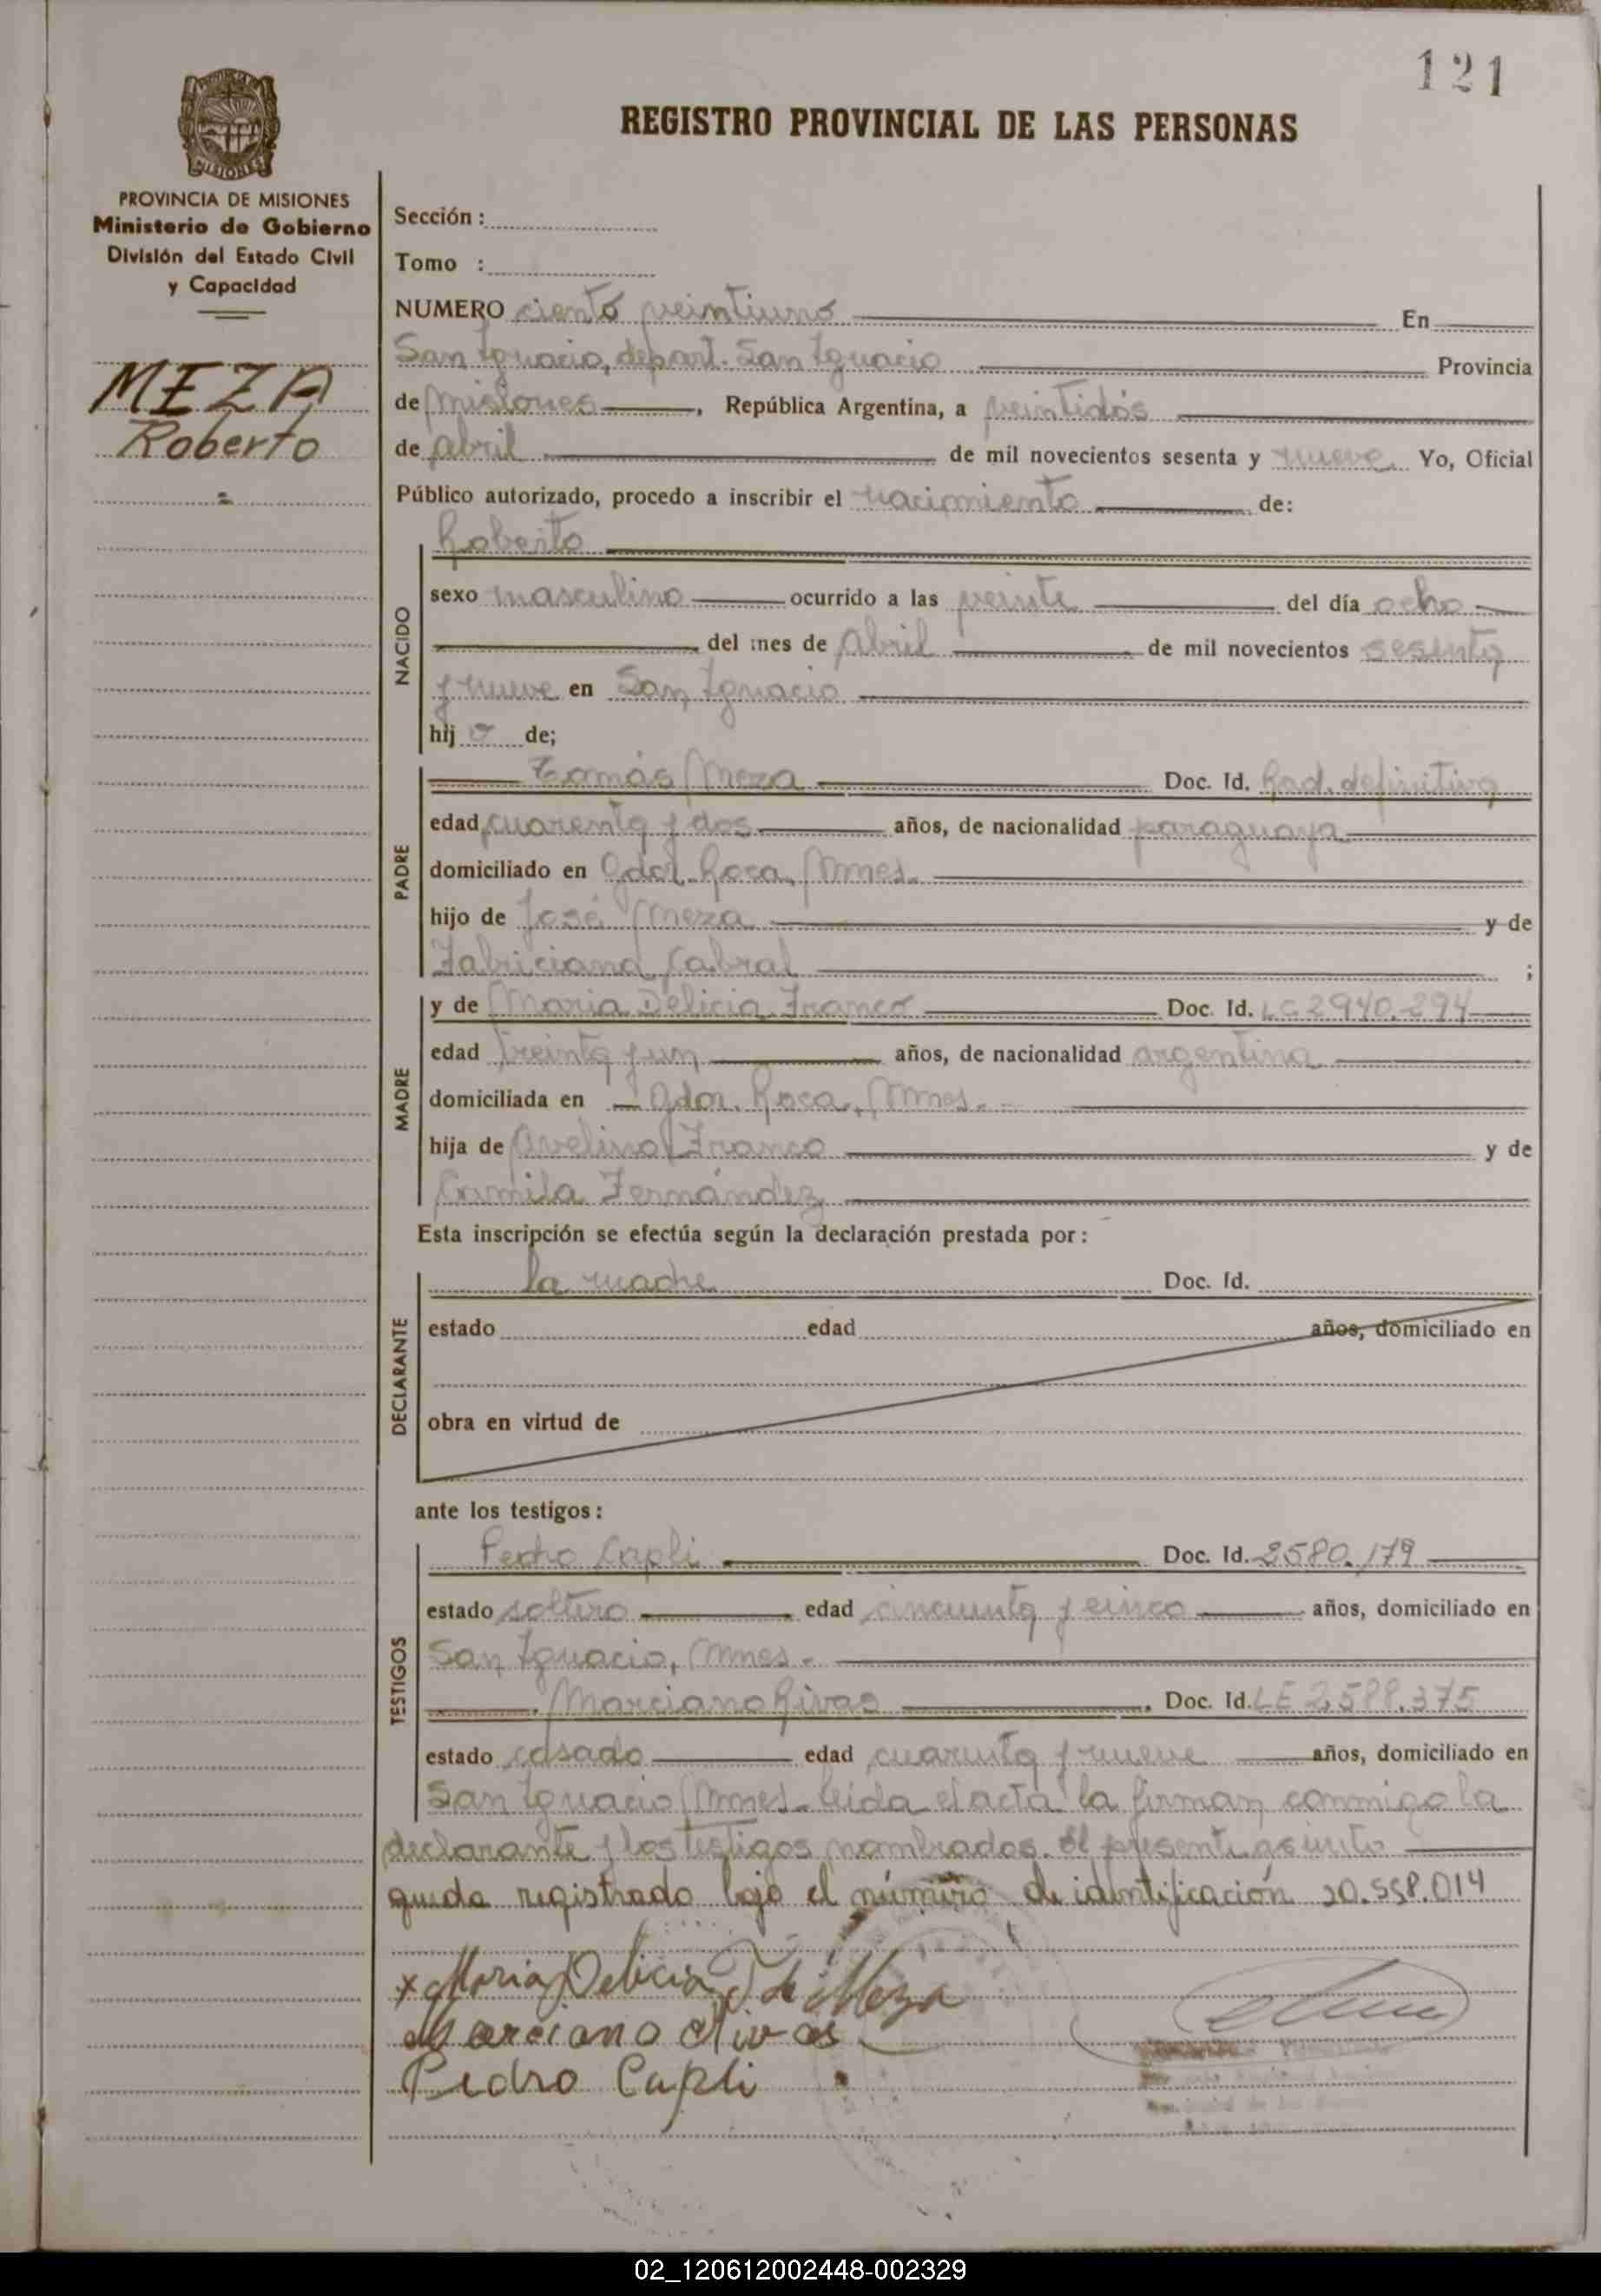 121
REGISTRO PROVINCIAL DE LAS PERSONAS
MISIONES
PROVINCIA DE MISIONES
Ministerio de Gobierno
División del Estado Civil
y Capacidad
MEZA
Roberto
Sección :
Tomo :
NUMERO ciento veintiuno En
San Ignacio, depart. San Ignacio Provincia
de Misiones, República Argentina, a veintidós
de abril de mil novecientos sesenta y nueve. Yo, Oficial
Público autorizado, procedo a inscribir el nacimiento de:
Roberto
NACIDO
sexo masculino ocurrido a las veinte del día ocho
del mes de abril de mil novecientos sesenta
y nueve en San Ignacio
hij o de;
PADRE
Tomás Meza Doc. Id. Rad. definitiva
edad cuarenta y dos años, de nacionalidad paraguaya
domiciliado en Gdor. Roca, Mnes.
hijo de José Meza y de
Fabriciana Cabral ;
MADRE
y de Maria Delicia Franco Doc. Id. LC 2940.294
edad treinta y un años, de nacionalidad argentina
domiciliada en Gdor. Roca, Mnes.
hija de Avelino Franco y de
Camila Fernández
Esta inscripción se efectúa según la declaración prestada por :
DECLARANTE
la madre Doc. Id.
estado edad años, domiciliado en
obra en virtud de
ante los testigos :
TESTIGOS
Pedro Capli Doc. Id. 2580.179
estado soltero edad cincuenta y cinco años, domiciliado en
San Ignacio, Mnes.
Marciano Rivas Doc. Id. LE 2.588.375
estado casado edad cuarenta y nueve años, domiciliado en
San Ignacio Mnes. leida el acta la firman conmigo la
declarante y los testigos nombrados. El presente asiento
queda registrado bajo el número de identificación 20.558.014
x Maria Delicia F de Meza
Marciano Rivas
Pedro Capli
02_120612002448-002329